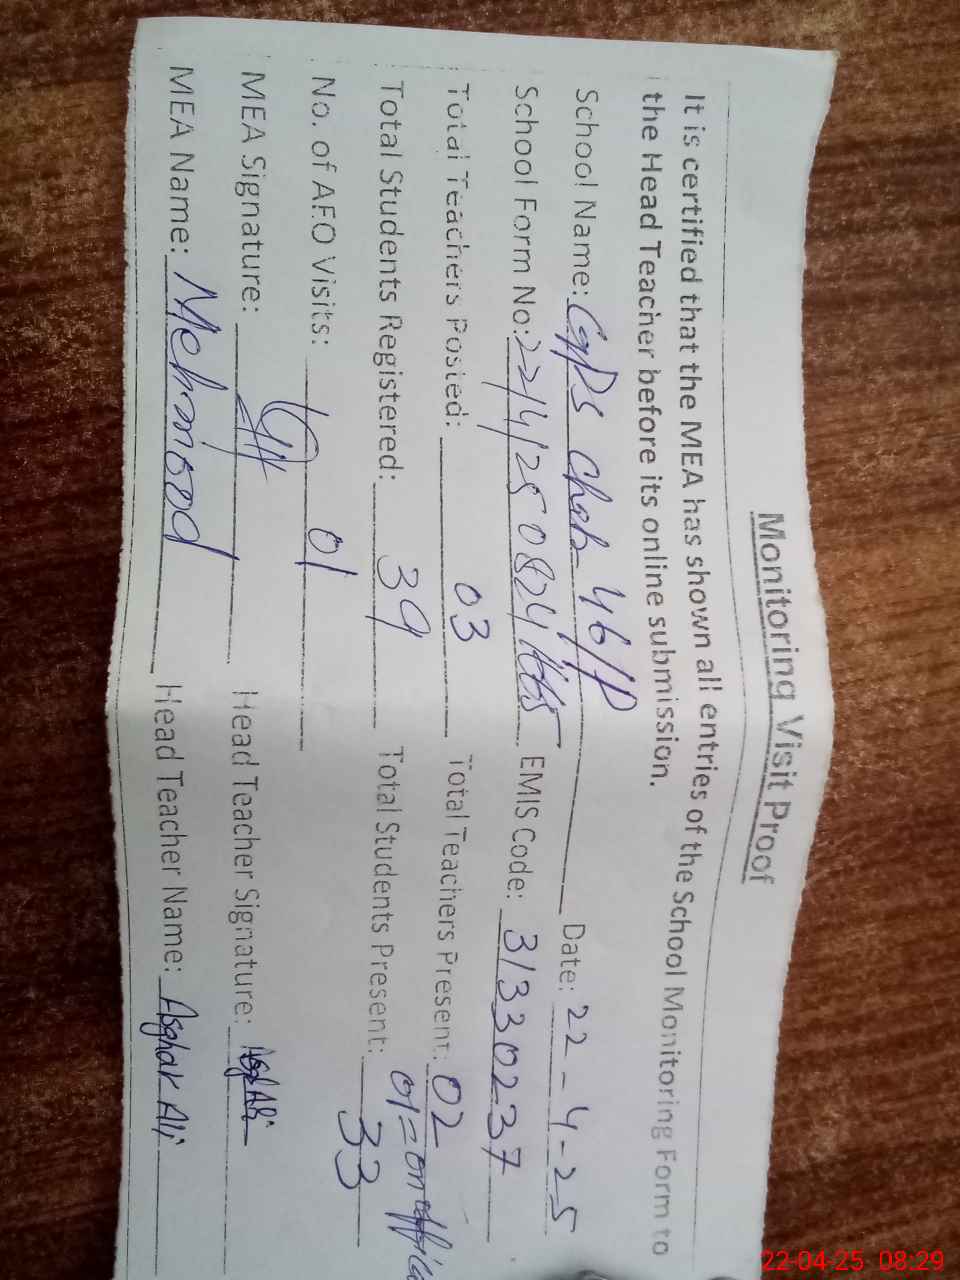 Monitoring Visit Proof
It is certified that the MEA has shown all entries of the School Monitoring Form to
the Head Teacher before its online submission.
School Name: GPS Chak 46/P Date: 22-4-25
School Form No: EMIS Code: 31330237
Total Teachers Posted: 03 Total Teachers Present: 02
01= on
Total Students Registered: 39 Total Students Present: 33
No. of AEO Visits: 01
MEA Signature: Head Teacher Signature:
MEA Name: Mehmood Head Teacher Name: Asghar Ali
22-04-25 08:29